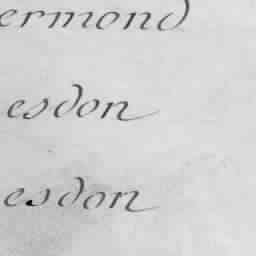 ermond
esdon
esdon